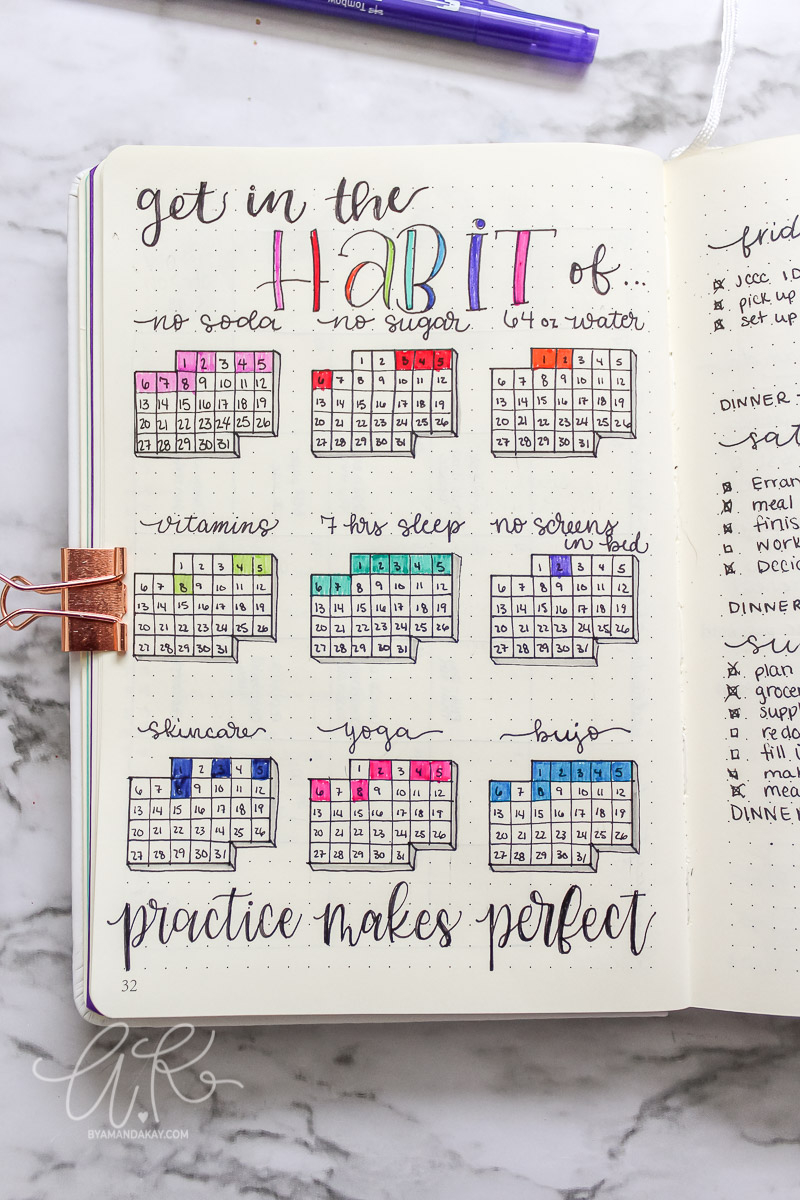 Tombow
get in the
HABIT of...
no soda
1 2 3 4 5
6 7 8 9 10 11 12
13 14 15 16 17 18 19
20 21 22 23 24 25 26
27 28 29 30 31
no sugar
1 2 3 4 5
6 7 8 9 10 11 12
13 14 15 16 17 18 19
20 21 22 23 24 25 26
27 28 29 30 31
64 oz water
1 2 3 4 5
6 7 8 9 10 11 12
13 14 15 16 17 18 19
20 21 22 23 24 25 26
27 28 29 30 31
vitamins
1 2 3 4 5
6 7 8 9 10 11 12
13 14 15 16 17 18 19
20 21 22 23 24 25 26
27 28 29 30 31
7 hrs sleep
1 2 3 4 5
6 7 8 9 10 11 12
13 14 15 16 17 18 19
20 21 22 23 24 25 26
27 28 29 30 31
no screens
in bed
1 2 3 4 5
6 7 8 9 10 11 12
13 14 15 16 17 18 19
20 21 22 23 24 25 26
27 28 29 30 31
skincare
1 2 3 4 5
6 7 8 9 10 11 12
13 14 15 16 17 18 19
20 21 22 23 24 25 26
27 28 29 30 31
yoga
1 2 3 4 5
6 7 8 9 10 11 12
13 14 15 16 17 18 19
20 21 22 23 24 25 26
27 28 29 30 31
bujo
1 2 3 4 5
6 7 8 9 10 11 12
13 14 15 16 17 18 19
20 21 22 23 24 25 26
27 28 29 30 31
practice makes perfect
32
frid
JCCC I.D
pick up
set up
DINNER -
sat
Erran
meal
finis
work
Decid
DINNER
su
plan
grocer
suppl
redo
fill
mak
mea
DINNE
A.K
BYAMANDAKAY.COM